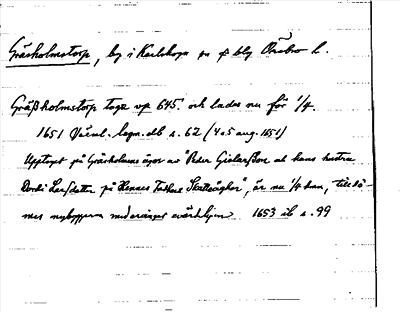 Gräsholmstorp, by i Karlskoga sn o bbg Örebro l.
Gråßholmstorp togs up 645. och lades nu för 1/4.
1651 Värml. lagm. db s. 62 (4 o 5 aug. 1651)
Upptaget på Gräsholmens ägor av "Peder Gielerßon at hans hustru
Dordi Larsdotter på Hennes Faders Skatteäghor", är nu 1/4 hmn, tilldö-
mes nybyggaren 1653 ib s. 99